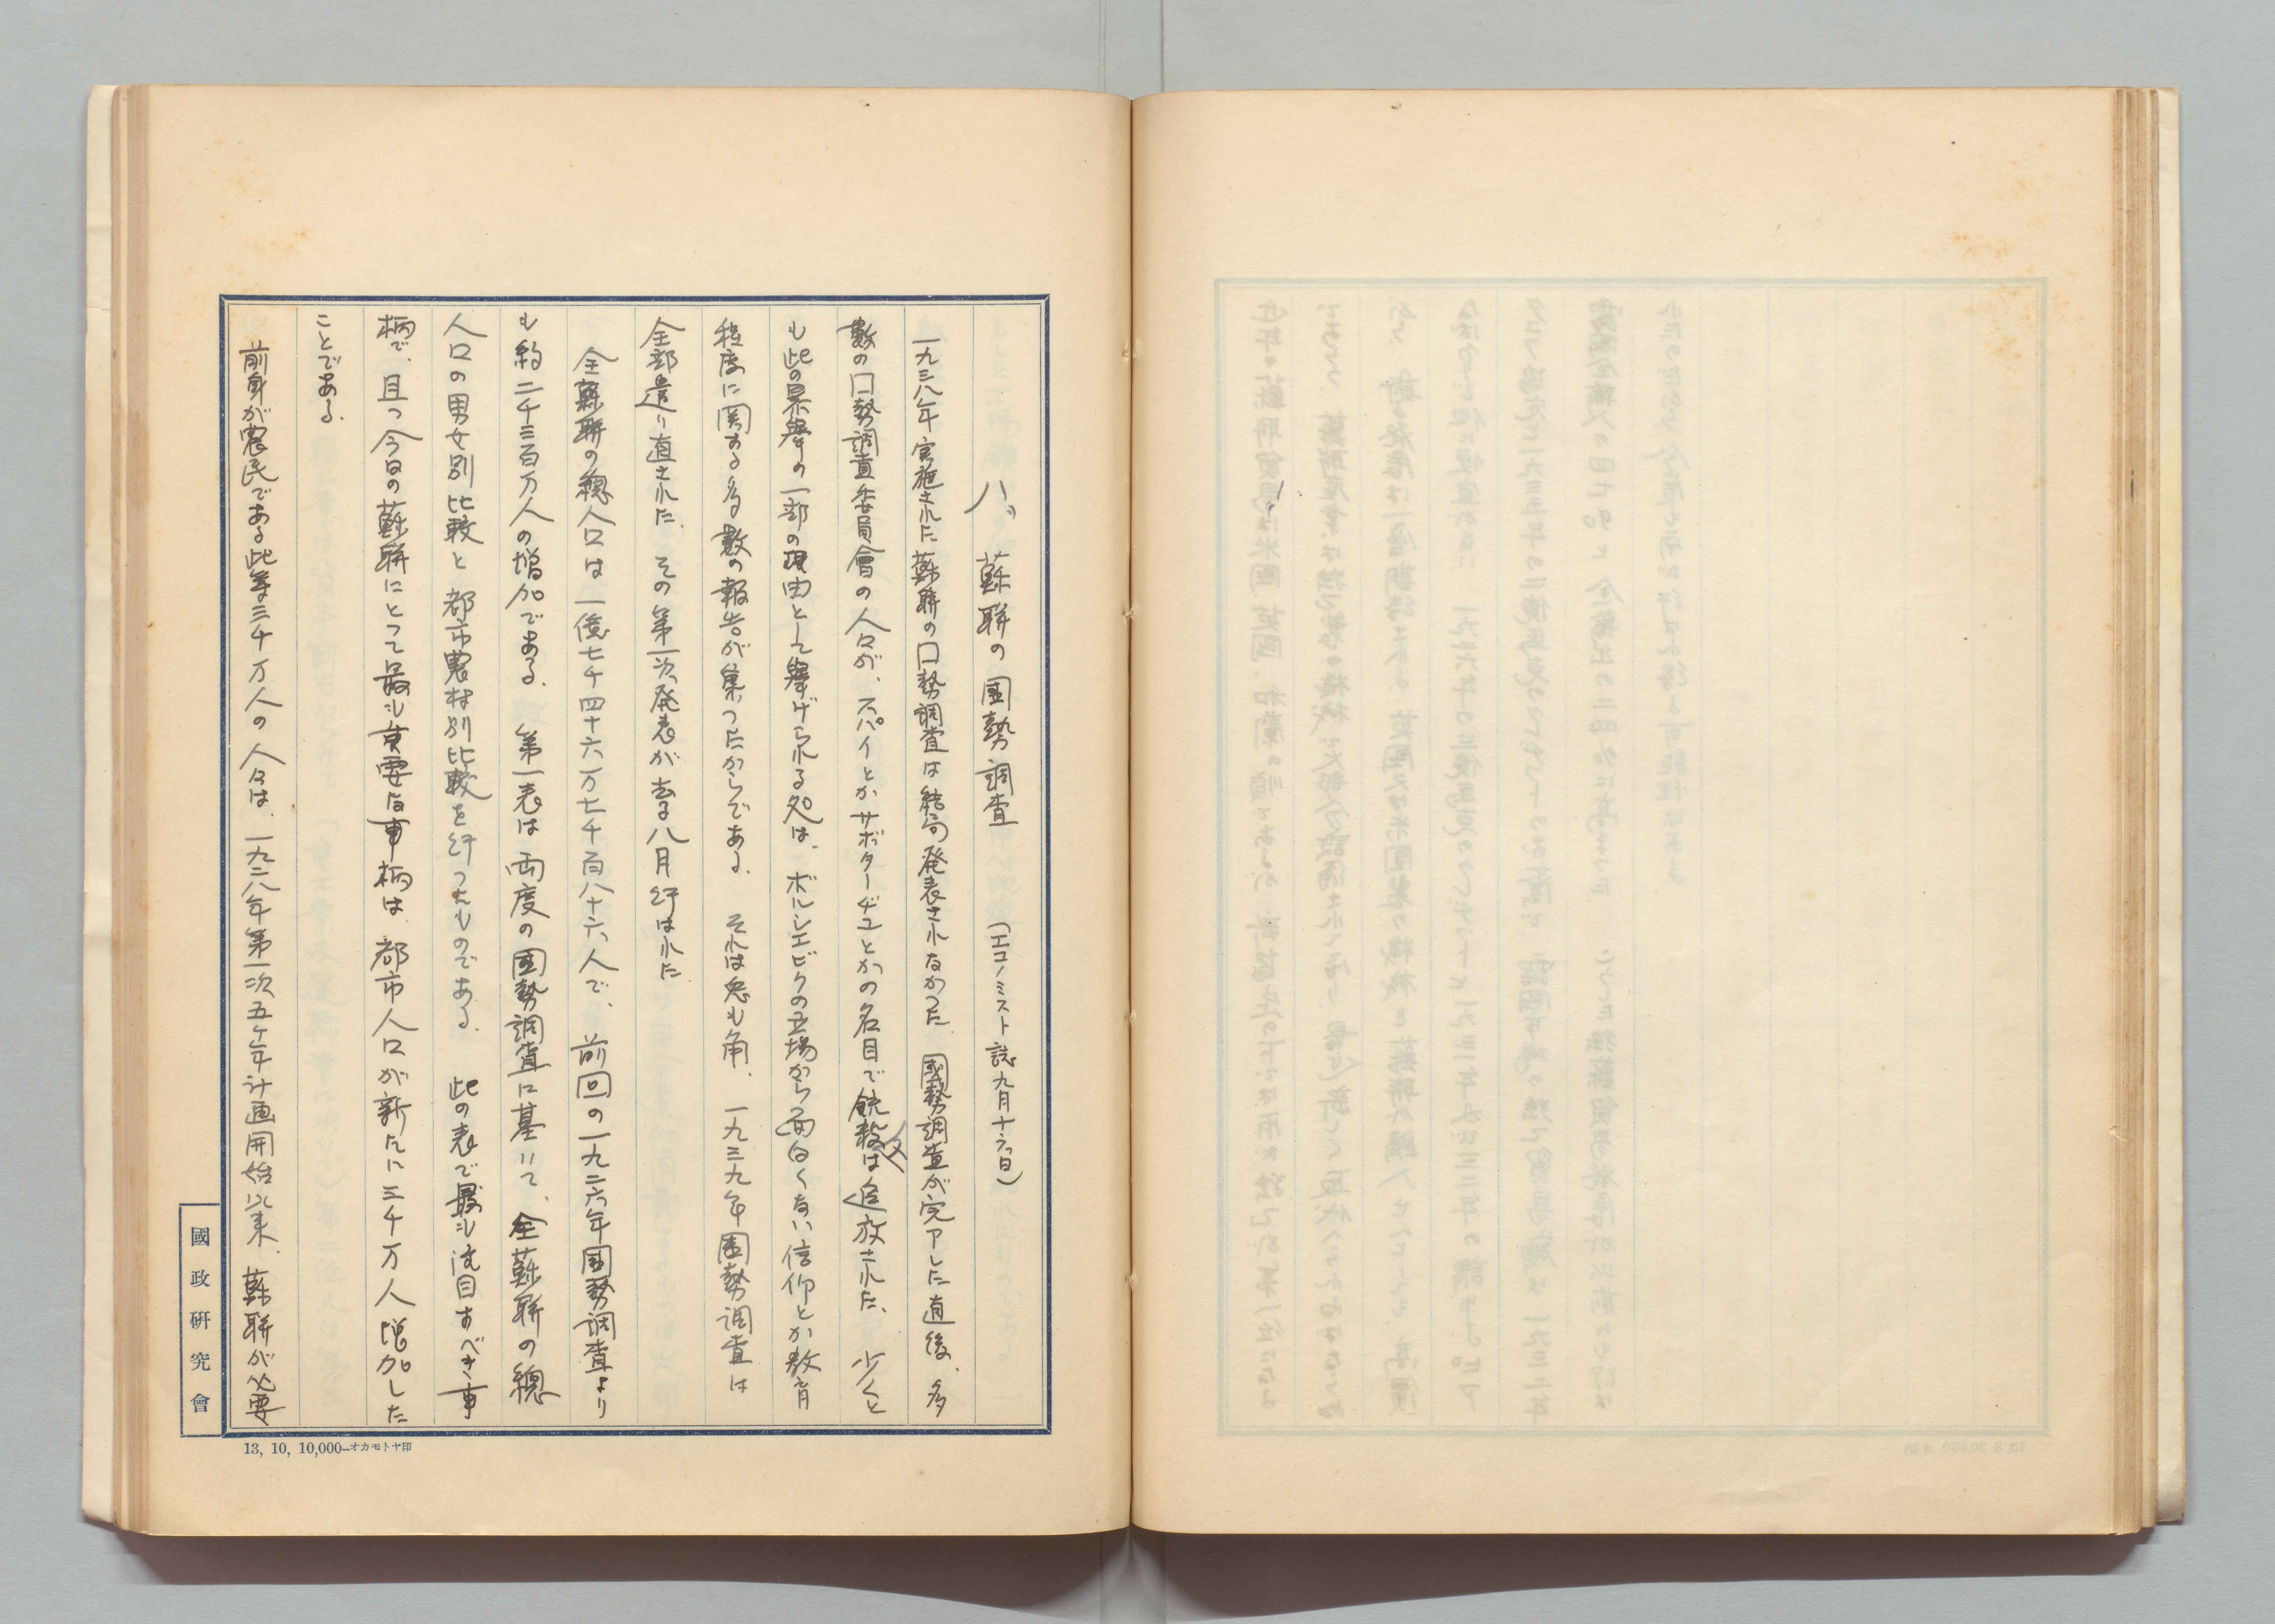 八、蘇聯の國勢調査　（エコノミスト誌九月十六日）
一九三八年実施された蘇聯の口勢調査は結局発表されなかった。國勢調査が完了した直後、多
數の口勢調査委員會の人々が、スパイとかサボターヂュとかの名目で銃殺又は追放された、少くと
も此の暴擧の一部の理由として擧げられる処は、ボルシエビクの立場から面白くない信仰とか教育
程度に関する多數の報告が集ったからである。それは兎も角、一九三九年國勢調査は
全部遣り直された。その第一次発表が去る八月行はれた
全蘇聯の總人口は一億七千四十六万七千百八十六人で、前回の一九二六年國勢調査より
も約二千三百万人の増加である。第一表は両度の國勢調査に基いて、全蘇聯の總
人口の男女別比較と都市農村別比較を行ったものである。此の表で最も注目すべき事
柄で、且つ今日の蘇聯にとって最も重要な事柄は、都市人口が新たに三千万人増加した
ことである。
前身が農民である此等三千万人の人々は、一九二八年第一次五ケ年計画開始以来、蘇聯が必要
國政研究會
13, 10, 10,000—オカモトヤ印